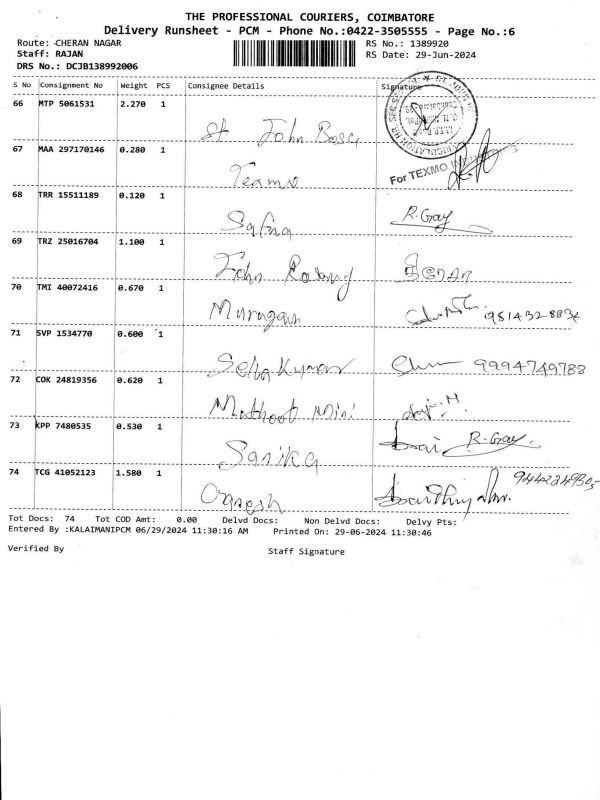 THE PROFESSIONAL COURIERS, COIMBATORE
Delivery Runsheet - PCM - Phone No.:0422-3505555 - Page No.:6
Route: CHERAN NAGAR RS No.: 1389920
Staff: RAJAN RS Date: 29-Jun-2024
DRS No.: DCJB138992006
S No Consignment No Weight PCS Consignee Details Signature
66 MTP 5061531 2.270 1 St John Bosco
67 MAA 297170146 0.280 1 Teams For TEXMO
68 TRR 15511189 0.120 1 Safna R. Gray
69 TRZ 25016704 1.100 1 John
70 TMI 40072416 0.670 1 Murugan
71 SVP 1534770 0.600 1 Selva Kumar 9994749788
72 COK 24819356 0.620 1 Muthoot Mini
73 KPP 7480535 0.530 1 Sarika R. Gray.
74 TCG 41052123 1.580 1 Ganesh
Tot Docs: 74 Tot COD Amt: 0.00 Delvd Docs: Non Delvd Docs: Delvy Pts:
Entered By :KALAIMANIPCM 06/29/2024 11:30:16 AM Printed On: 29-06-2024 11:30:46
Verified By Staff Signature